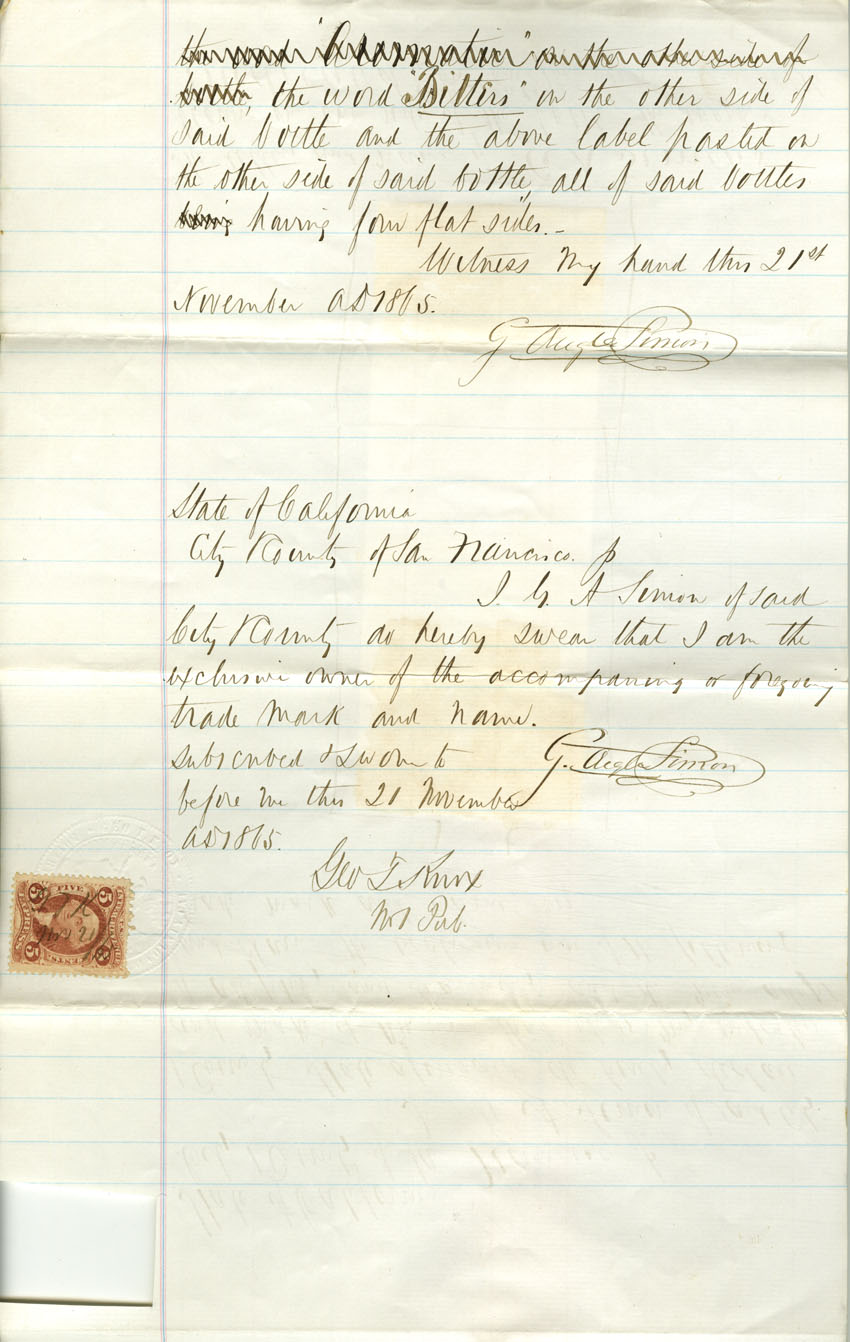 the word "Aromatic" on the other side of
bottle, the word "Bitters" on the other side of
said bottle and the above label pasted on
the other side of said bottle, all of said bottles
being having four flat sides.-
Witness my hand this 21st
November AD 1865.
G Aegle Simon
State of California
City & County of San Francisco.
I. G. A Simon of said
City & County do hereby swear that I am the
exclusive owner of the accompaning or foregoing
trade mark and name.
subscribed & sworn to
G. Aegle Simon
before me this 21 November
AD 1865.
Geo T Knox
Not Pub.
FIVE
5 5
CENTS.
5 5
G T K
Nov 21